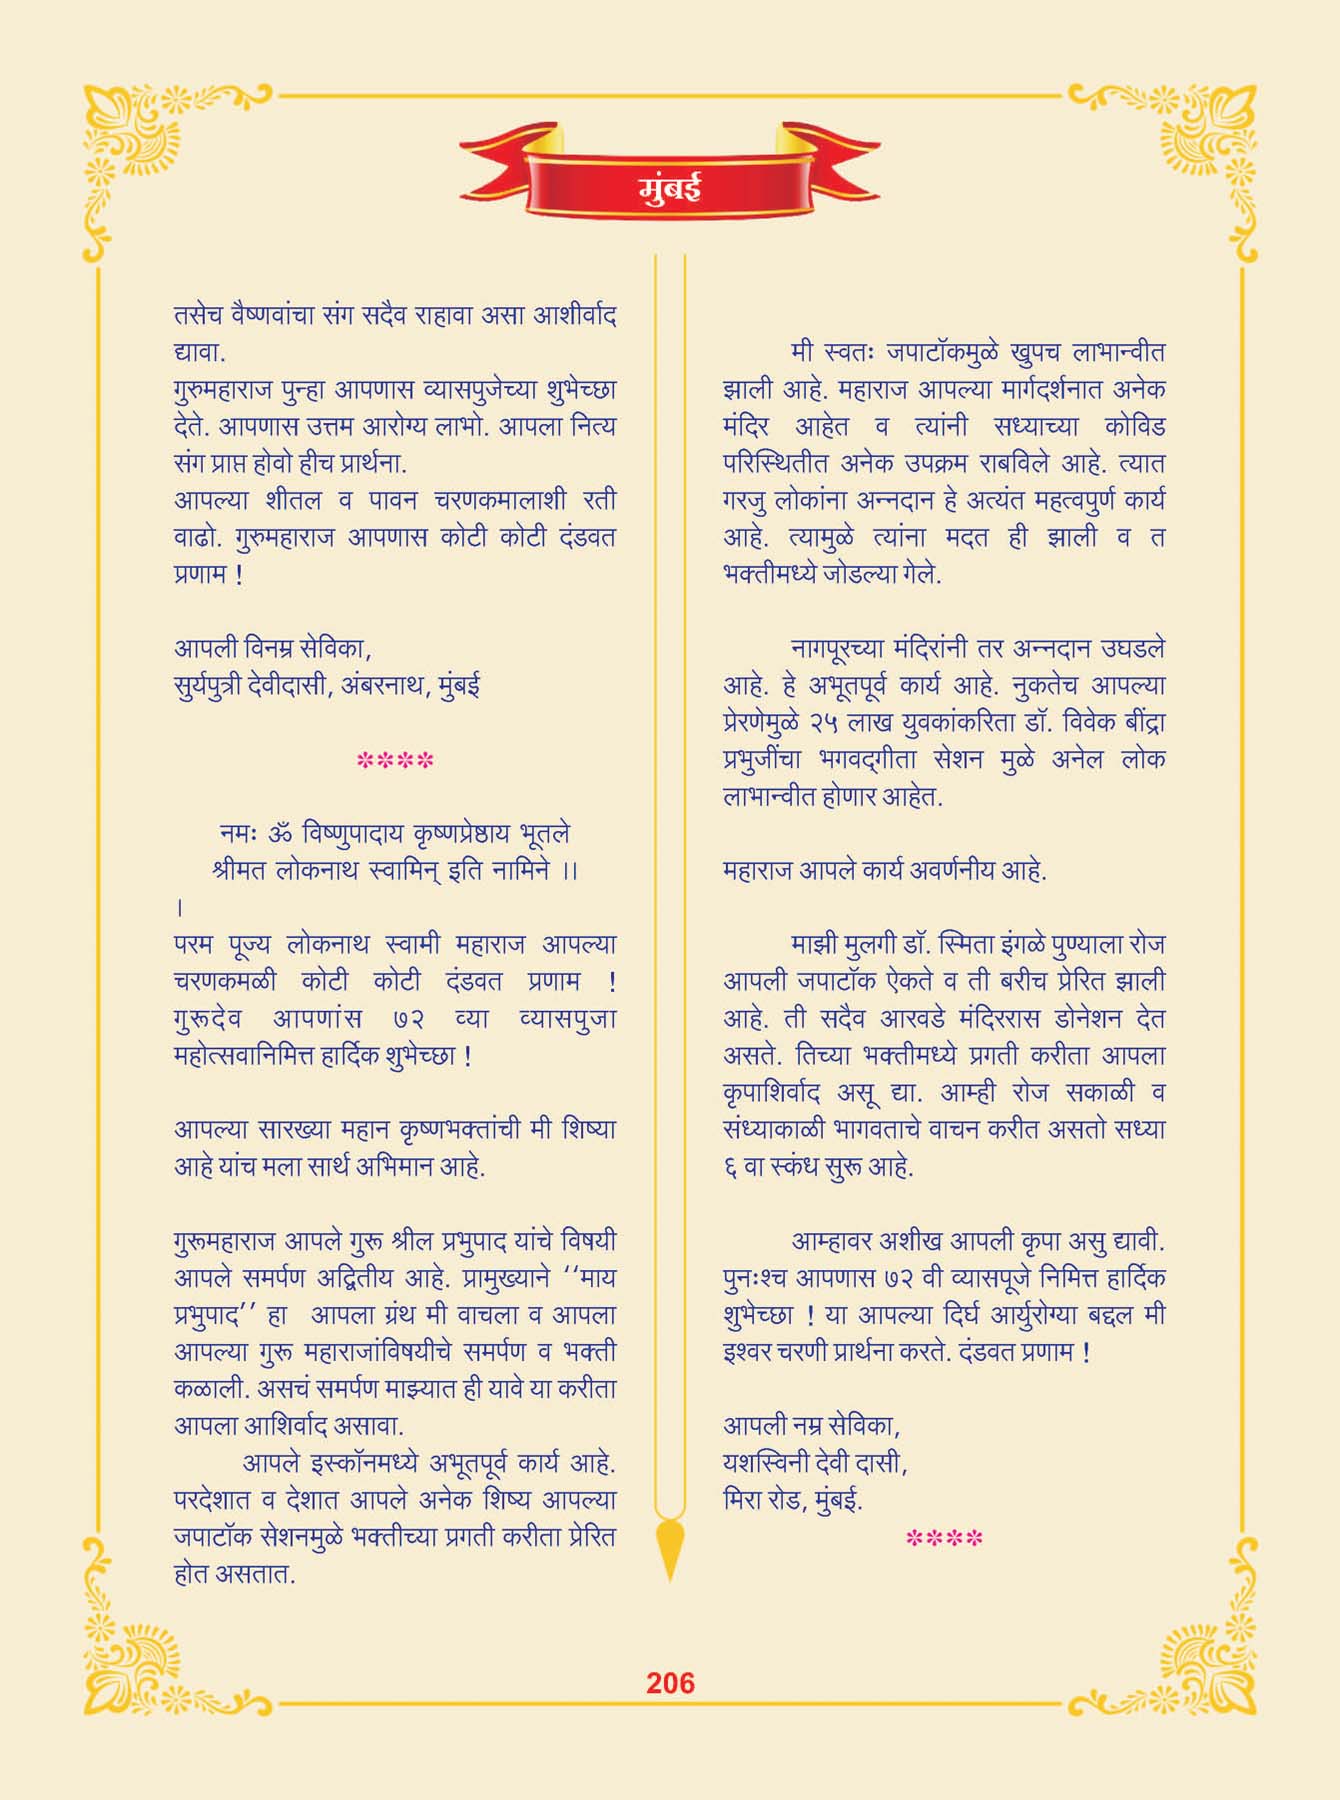 मुंबई
तसेच वैष्णवांचा संग सदैव राहावा असा आशीर्वाद
द्यावा.
गुरुमहाराज पुन्हा आपणास व्यासपुजेच्या शुभेच्छा
देते. आपणास उत्तम आरोग्य लाभो. आपला नित्य
संग प्राप्त होवो हीच प्रार्थना.
आपल्या शीतल व पावन चरणकमालाशी रती
वाढो. गुरुमहाराज आपणास कोटी कोटी दंडवत
प्रणाम !
आपली विनम्र सेविका,
सुर्यपुत्री देवीदासी, अंबरनाथ, मुंबई
****
नमः ॐ विष्णुपादाय कृष्णप्रेष्ठाय भूतले
श्रीमत लोकनाथ स्वामिन् इति नामिने ।।
।
परम पूज्य लोकनाथ स्वामी महाराज आपल्या
चरणकमळी कोटी कोटी दंडवत प्रणाम !
गुरूदेव आपणांस ७२ व्या व्यासपुजा
महोत्सवानिमित्त हार्दिक शुभेच्छा !
आपल्या सारख्या महान कृष्णभक्तांची मी शिष्या
आहे यांच मला सार्थ अभिमान आहे.
गुरूमहाराज आपले गुरू श्रील प्रभुपाद यांचे विषयी
आपले समर्पण अद्वितीय आहे. प्रामुख्याने ‘‘माय
प्रभुपाद’’ हा आपला ग्रंथ मी वाचला व आपला
आपल्या गुरू महाराजांविषयीचे समर्पण व भक्ती
कळाली. असचं समर्पण माझ्यात ही यावे या करीता
आपला आशिर्वाद असावा.
आपले इस्कॉनमध्ये अभूतपूर्व कार्य आहे.
परदेशात व देशात आपले अनेक शिष्य आपल्या
जपाटॉक सेशनमुळे भक्तीच्या प्रगती करीता प्रेरित
होत असतात.
मी स्वतः जपाटॉकमुळे खुपच लाभान्वीत
झाली आहे. महाराज आपल्या मार्गदर्शनात अनेक
मंदिर आहेत व त्यांनी सध्याच्या कोविड
परिस्थितीत अनेक उपक्रम राबविले आहे. त्यात
गरजु लोकांना अन्नदान हे अत्यंत महत्वपुर्ण कार्य
आहे. त्यामुळे त्यांना मदत ही झाली व त
भक्तीमध्ये जोडल्या गेले.
नागपूरच्या मंदिरांनी तर अन्नदान उघडले
आहे. हे अभूतपूर्व कार्य आहे. नुकतेच आपल्या
प्रेरणेमुळे २५ लाख युवकांकरिता डॉ. विवेक बींद्रा
प्रभुजींचा भगवद्‌गीता सेशन मुळे अनेल लोक
लाभान्वीत होणार आहेत.
महाराज आपले कार्य अवर्णनीय आहे.
माझी मुलगी डॉ. स्मिता इंगळे पुण्याला रोज
आपली जपाटॉक ऐकते व ती बरीच प्रेरित झाली
आहे. ती सदैव आरवडे मंदिररास डोनेशन देत
असते. तिच्या भक्तीमध्ये प्रगती करीता आपला
कृपाशिर्वाद असू द्या. आम्ही रोज सकाळी व
संध्याकाळी भागवताचे वाचन करीत असतो सध्या
६ वा स्कंध सुरू आहे.
आम्हावर अशीख आपली कृपा असु द्यावी.
पुनःश्च आपणास ७२ वी व्यासपूजे निमित्त हार्दिक
शुभेच्छा ! या आपल्या दिर्घ आर्युरोग्या बद्दल मी
इश्वर चरणी प्रार्थना करते. दंडवत प्रणाम !
आपली नम्र सेविका,
यशस्विनी देवी दासी,
मिरा रोड, मुंबई.
****
206